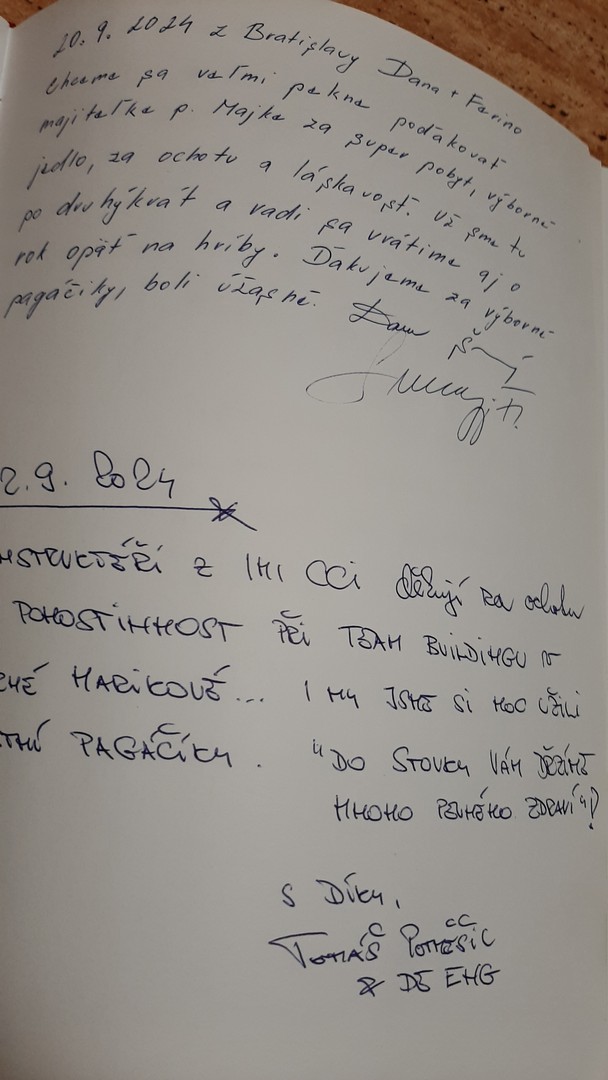 20.9.2024 z Bratislavy Dana + Ferino
chceme sa veľmi pekne poďakovať
majiteľke p. Majke za super pobyt, výborné
jedlo, za ochotu a láskavosť. Už sme tu
po druhýkrát a radi sa vrátime aj o
rok opäť na hríby. Ďakujeme za výborné
pagáčiky, boli úžasné.
2.9.2024
NSTRUKTÉŘI Z IMI CCI děkují za ochotu
POHOSTINNOST PŘI TEAM BUILDINGU V
MARIKOVÉ... I MY JSME SI MOC UŽILI
PAGÁČIKY. "DO STOVKY VÁM
MNOHO PEVNÉHO ZDRAVÍ"!
S DÍKY,
TOMÁŠ